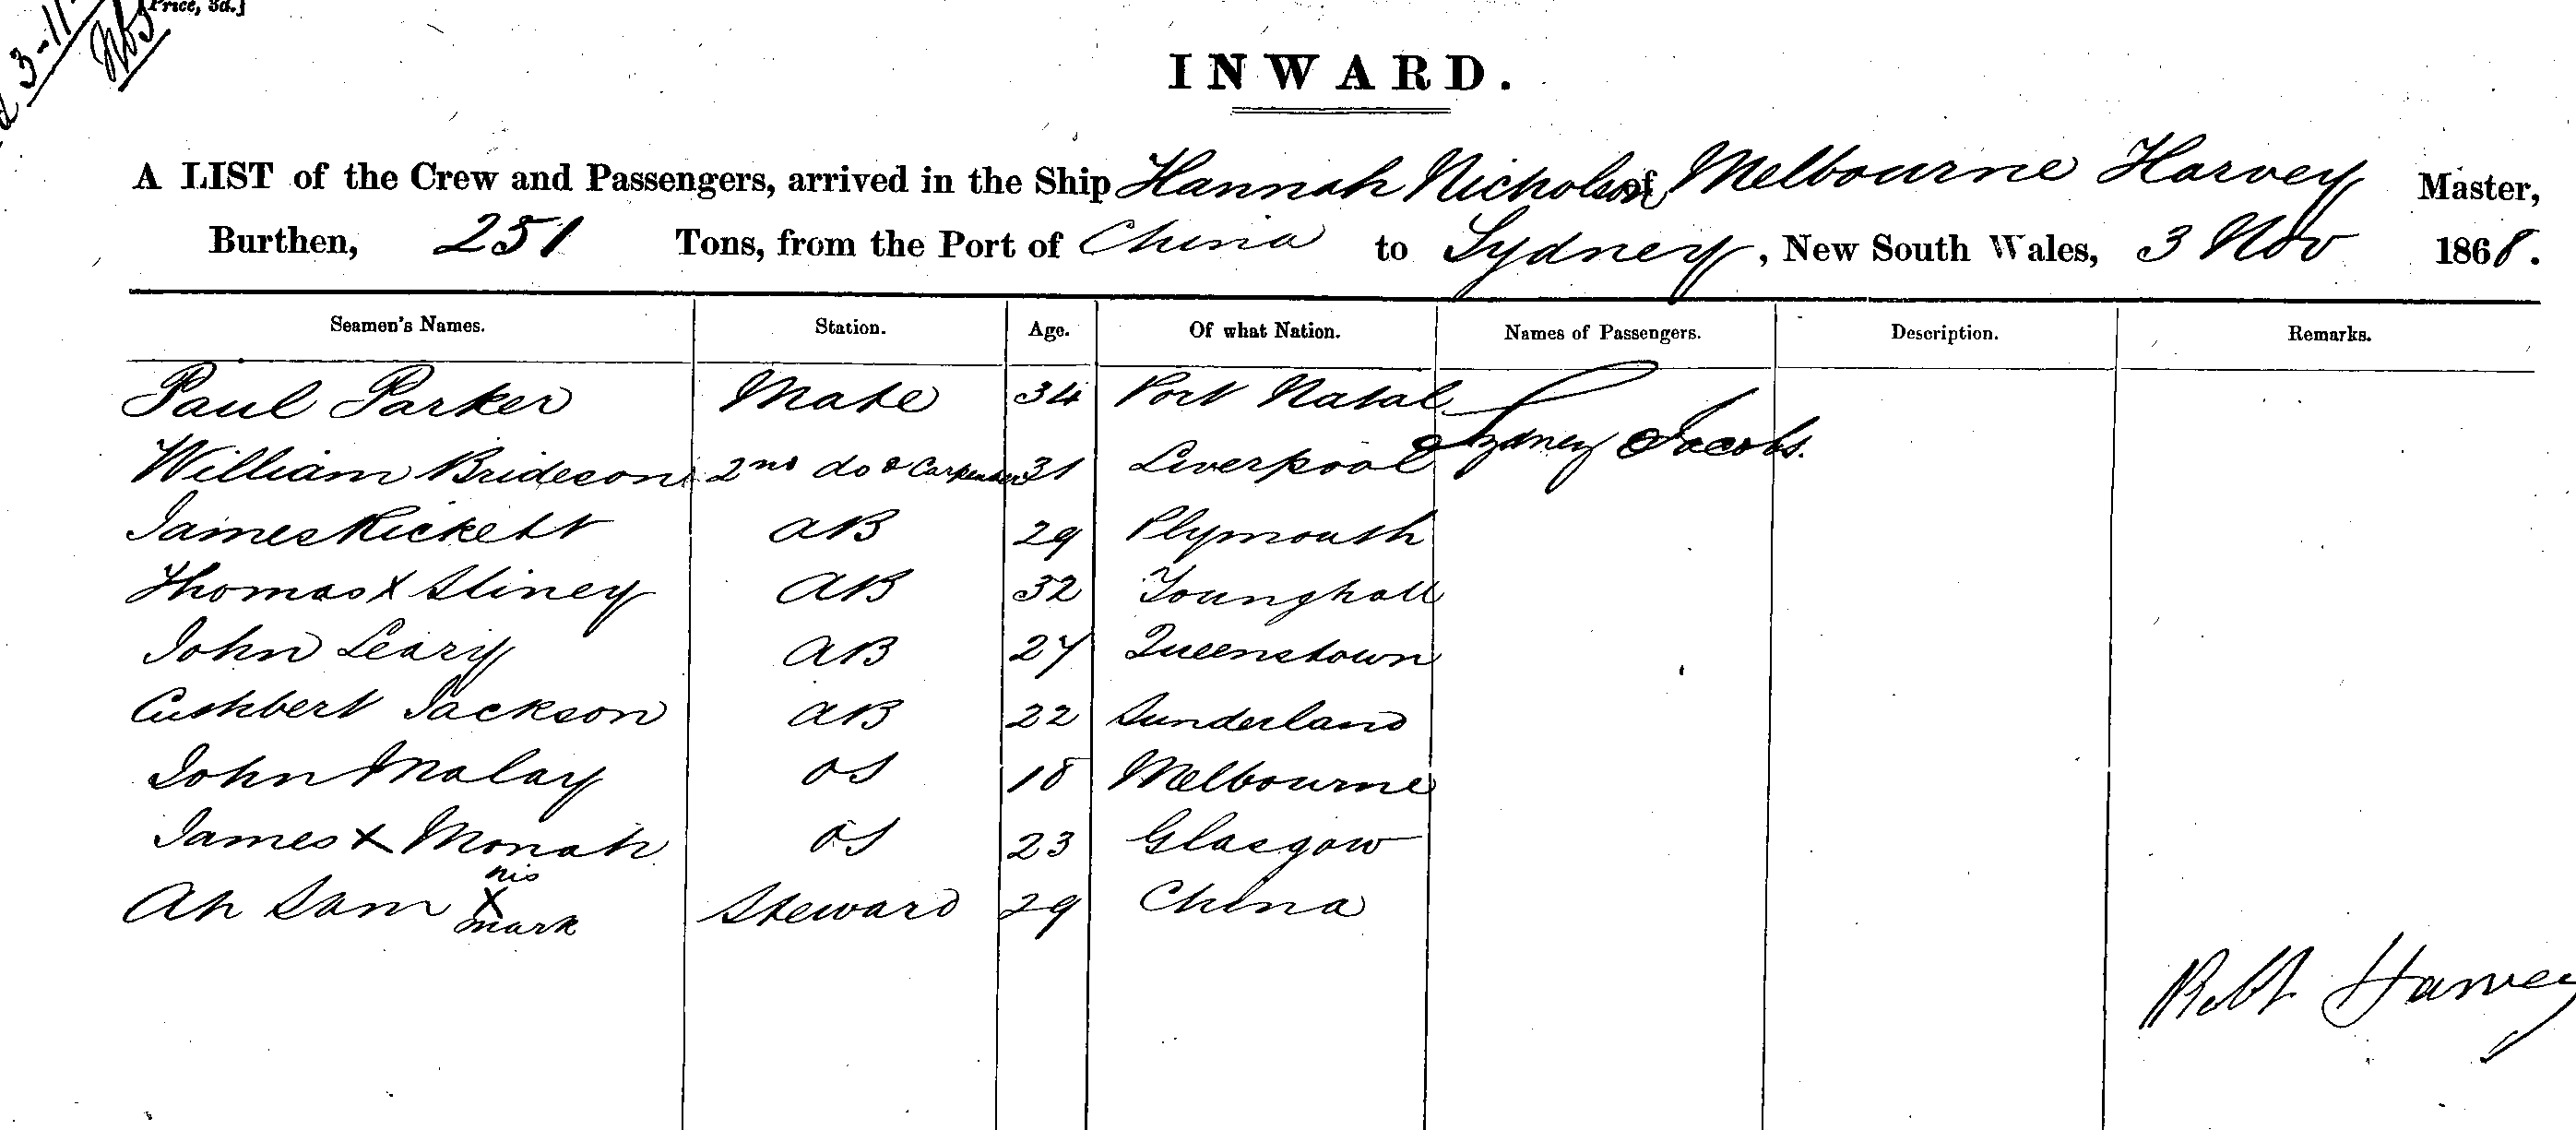 Price, 3d.]
3-11-
INWARD.
A LIST of the Crew and Passengers, arrived in the Ship Hannah Nicholson of Melbourne Harvey Master,
Burthen, 251 Tons, from the Port of China to Sydney, New South Wales, 3 Nov 1868.
Seamen's Names. Station. Age. Of what Nation. Names of Passengers. Description. Remarks.
Paul Parker Mate 34 Port Natal Sydney Jacobs.
William Brideson 2nd do & Carpenter 31 Liverpool
James Rickett AB 29 Plymouth
Thomas X Sliney AB 32 Younghall
John Leary AB 27 Queenstown
Cuthbert Jackson AB 22 Sunderland
John Malay OS 18 Melbourne
James X Monah OS 23 Glasgow
Ah Sam his X mark Steward 29 China
Robt Harvey